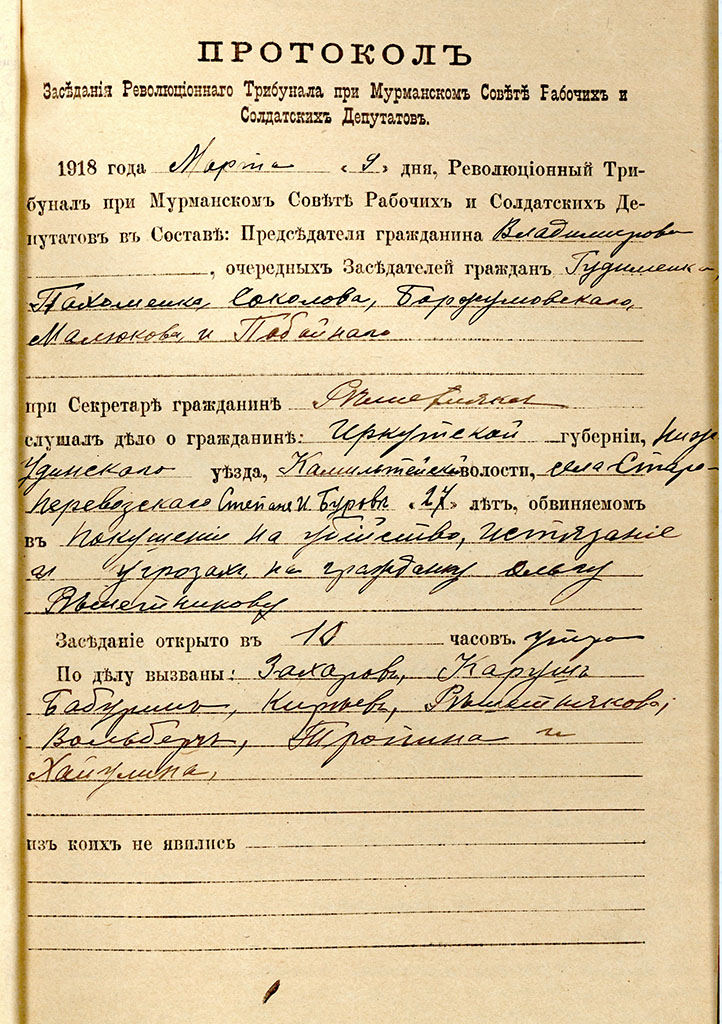 ПРОТОКОЛЪ
Засѣданія Революціоннаго Трибунала при Мурманскомъ Совѣтѣ Рабочихъ и
Солдатскихъ Депутатовъ.
1918 года Марта «9» дня, Революціонный Три-
буналъ при Мурманскомъ Совѣтѣ Рабочихъ и Солдатскихъ Де-
путатовъ въ Составѣ: Предсѣдателя гражданина Владимирова
, очередныхъ Засѣдателей гражданъ Гудименка,
Пахоменка, Соколова, Боржумовскаго,
Малюкова и Побойнаго
при Секретарѣ гражданинѣ
слушалъ дѣло о гражданинѣ: Иркутской губерніи, Нижне-
Удинскаго уѣзда, волости, села Старо-
Перевозскаго Степане И. Буровѣ «27» лѣтъ, обвиняемомъ
въ покушеніи на убійство, истязаніе
и угрозах, на гражданку Ольгу
Рѣшетникову
Засѣданіе открыто въ 10 часовъ. утра
По дѣлу вызваны: Захаровъ, Карушъ
Бабуринъ, Кирьевъ, Рѣшетникова,
Вольберъ, Тропина и
Хайулина,
изъ коихъ не явились